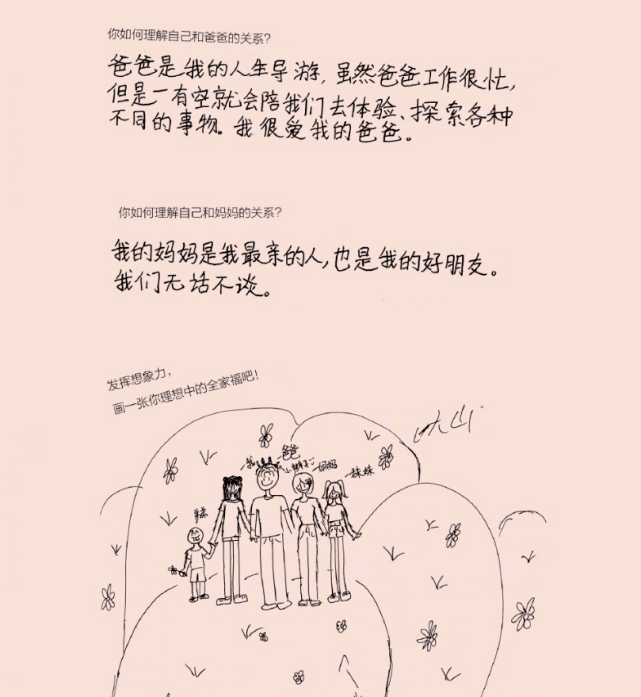 你如何理解自己和爸爸的关系?
爸爸是我的人生导游,虽然爸爸工作很忙,
但是一有空就会陪我们去体验、探索各种
不同的事物。我很爱我的爸爸。
你如何理解自己和妈妈的关系?
我的妈妈是我最亲的人,也是我的好朋友。
我们无话不谈。
发挥想象力,
画一张你理想中的全家福吧!
我
爸
妈妈
妹妹